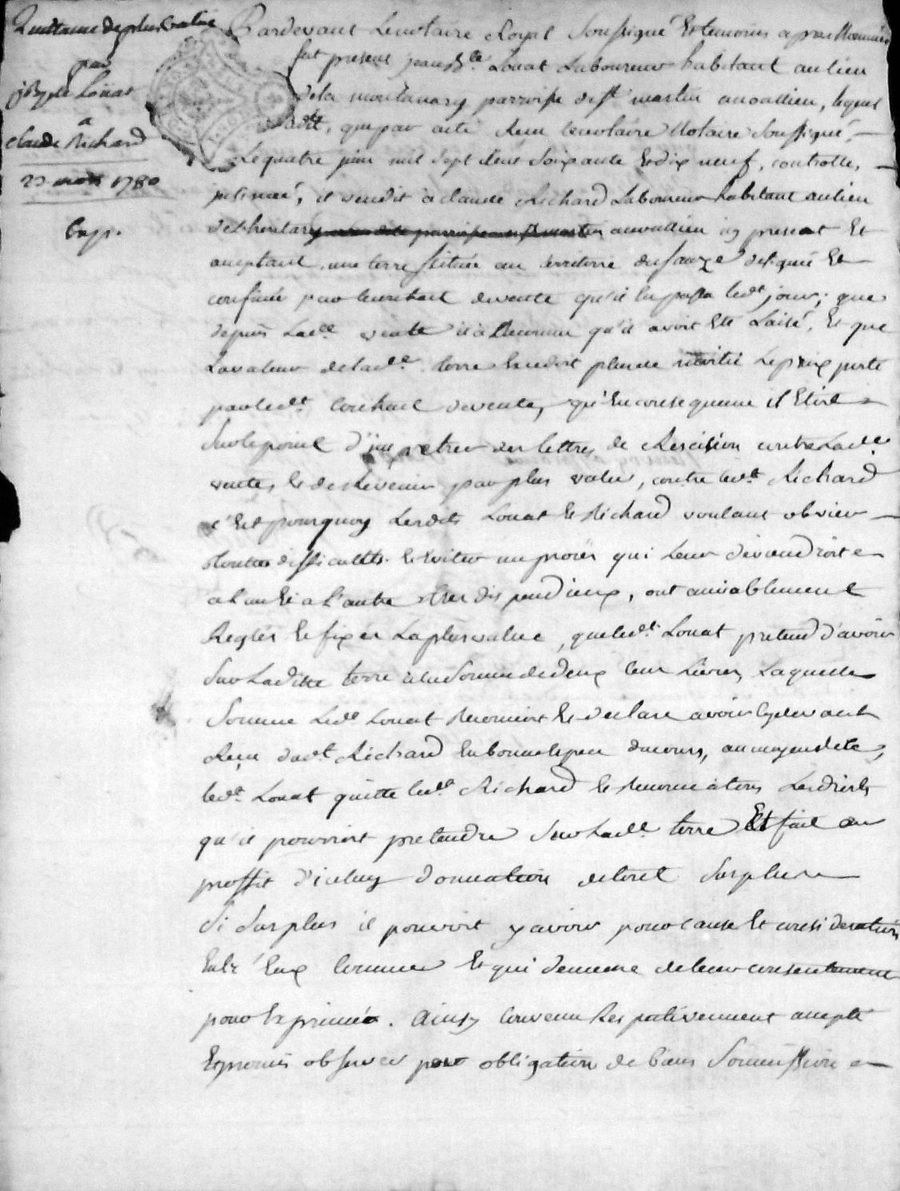 Quittance de plus value
par
jean Bte Louat
a
claude Richard
23 mars 1780
Exp.
Pardevant Le notaire Royal Soussigné Et temoins apres Nommés
fut present jean Bte. Louat Laboureur habitant au lieu
de la parroisse de st. martin lequel
a dit, que par acte Reçu Notaire Soussigné,
Le quatre juin mil Sept Cent Soixante Et dix neuf, controllé,
il vendit a claude Richard Laboureur habitant au lieu
present Et
acceptant, une terre Scituée au territoire designé Et
confiné par le contrat de vente qu'il lui passa ledt. jour; que
depuis Lade. vente il a Reconnu qu'il avoit Eté Laisé, Et que
La valeur de lade. terre Excedoit plus de moitié Le prix porté
par ledt. contrat de vente, qu'En consequence il Etoit
Sur le point d'impetrer des lettres de Rescision contre Lade.
vente, Et de Revenir par plus value, contre ledt. Richard
c'Est pourquoy Lesdits Louat Et Richard voulant obvier
a toutes difficultés Et Eviter un procès qui Leur deviendroit
a l'un Et a L'autre tres dispendieux, ont amiablement
Reglés Et fixés La plus value, que ledt. Louat pretend d'avoir
Sur Laditte terre a la Somme de deux Cent Livres Laquelle
Somme Ledt. Louat Reconnoit Et declare avoir cy devant
Reçu dudt. Richard En bonnes Especes du cours, au moyen de ce,
ledt. Louat quitte ledt. Richard Et Renonce a tous Les droits
qu'il pourroit pretendre Sur Lade. terre Et fait au
proffit d'iceluy donnation de tout Surplus
Si Surplus il pouvoit y avoir pour cause Et consideration
Entr'Eux connue Et qui demeure de leur consentement
pour Exprimée. Ainsy convenu Respectivement accepté
Et promis observer par obligation de biens Soumission